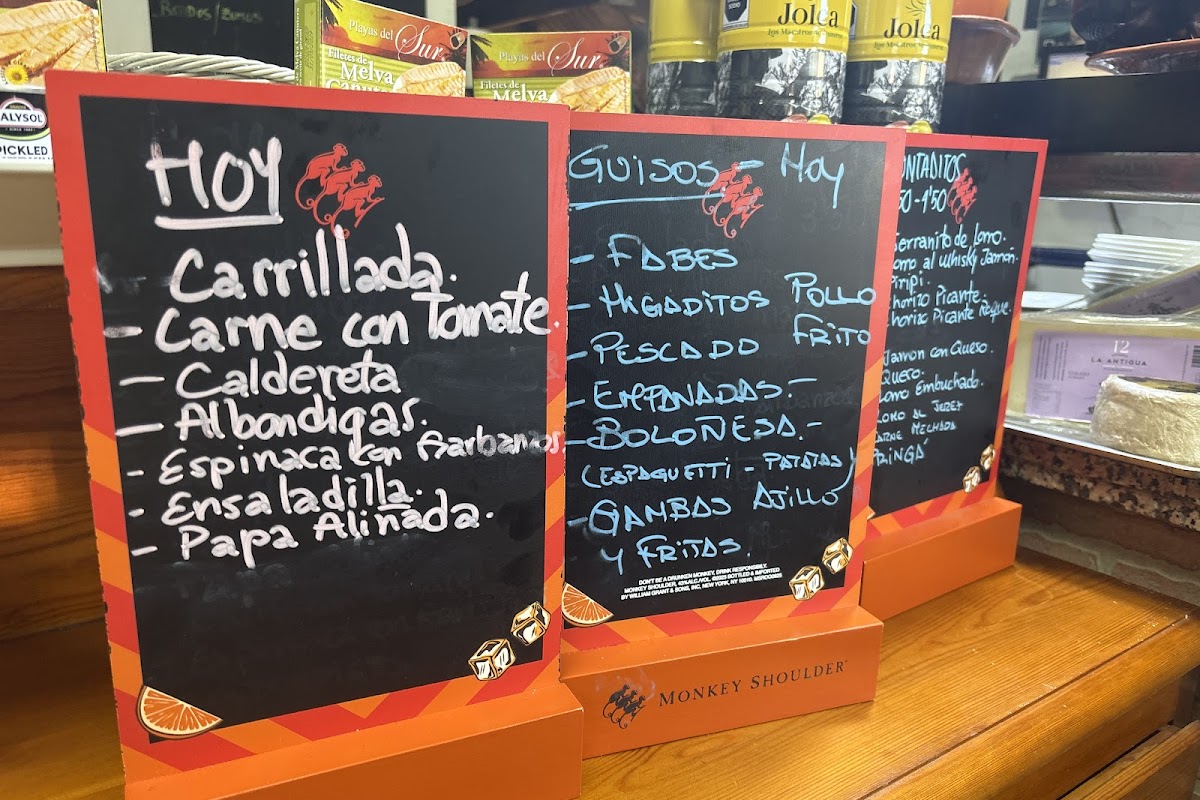 Playas del Sur
Filetes de
Melva
Playas del Sur
Filetes de
Melva
Jolca
Los Maestros
Jolca
Los Maestros
ALYSOL
PICKLED
HOY
Carrillada.
- Carne con Tomate.
- Caldereta
- Albondigas.
- Espinaca con Garbanzos.
- Ensaladilla.
- Papa Aliñada.
GUISOS - Hoy
- FABES
- HIGADITOS POLLO
- PESCADO FRITO
- EMPANADAS. -
- BOLOÑESA. -
(ESPAGUETTI - PATATAS)
- GAMBAS AJILLO
Y FRITAS.
DON'T BE A DRUNKEN MONKEY, DRINK RESPONSIBLY.
MONKEY SHOULDER, 43%ALC./VOL. ©2025 BOTTLED & IMPORTED
BY WILLIAM GRANT & SONS, INC. NEW YORK, NY 10010.
MONKEY SHOULDER
ONTADITOS
50-1'50
Serranito de Lomo.
omo al Whisky Jamón.
Piripi.
Chorizo Picante
Chorizo Picante
Jamon con Queso.
Queso.
Lomo Embuchado.
LOMO AL JEREZ
CARNE MECHADA
PRINGÁ
12
LA ANTIGUA